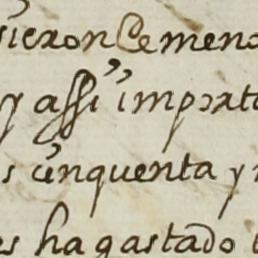 sieron Cemeno
y assi importa
s cinquenta y
es ha gastado